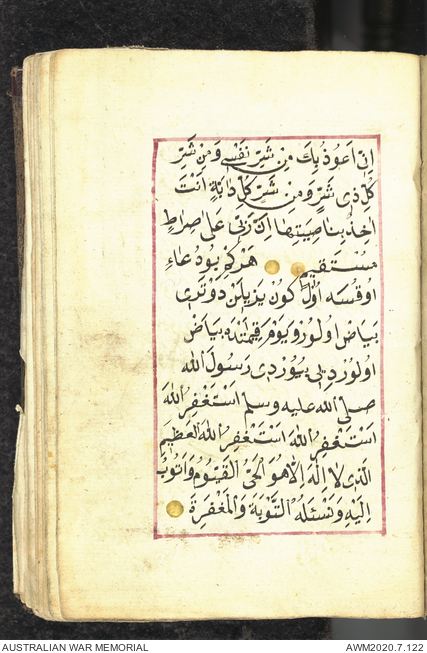 اِنّ اَعُوذُ بِكَ مِنْ شَرِّ نَفْسِي وَمِنْ شَرِّ
كُلِّ ذِى شَرٍّ وَمِنْ شَرِّ كُلِّ دَابَّةٍ اَنْتَ
اخِذٌ بِنَاصِيَتِهَا اِنَّ رَبِّى عَلَى صِرَاطٍ
مُسْتَقِيمٍ هَرْكِمْ بُو دُعَاءِ
اوقُسَه اَوَّلْ كُونْ يَزيلَنْ دَفْتَرِى
بَيَاضْ اولُورْ وَيَوْمَ قِيمَتْدَه بِيَاضْ
اولُورْ دِيُ بُيُورْدِى رَسُولُ الله
صلّى الله عليه وسلم اَسْتَغْفِرُ اللهَ
اَسْتَغْفِرُ اللهَ اَسْتَغْفِرُ اللهَ العَظِيمَ
الَّذِى لاَ اِلَهَ اِلاَّ هُوَ الْحَىُّ الْقَيُّومُ وَاَتُوبُ
اِلَيْهِ وَنَسْئَلُهُ التَّوْبَةَ وَالْمَغْفِرَةَ
AUSTRALIAN WAR MEMORIAL AWM2020.7.122